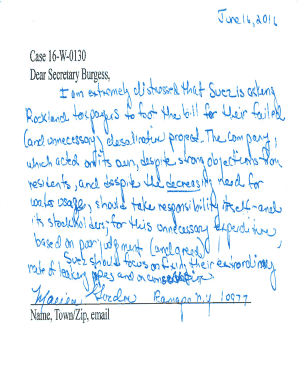 June 16, 2016
Case 16-W-0130
Dear Secretary Burgess,
I am extremely distressed that Suez is asking
Rockland taxpayers to foot the bill for their failed
(and unnecessary) desalination project. The company,
which acted on its own, despite strong objections from
residents, and despite the decreasing need for
water usage, should take responsibility itself - and
its stockholders, for this unnecessary expenditure
based on poor judgment (and greed).
Suez should focus on fixing their extraordinary
rate of leaking pipes and on conservation.
Ramapo N.Y. 10977
Name, Town/Zip, email